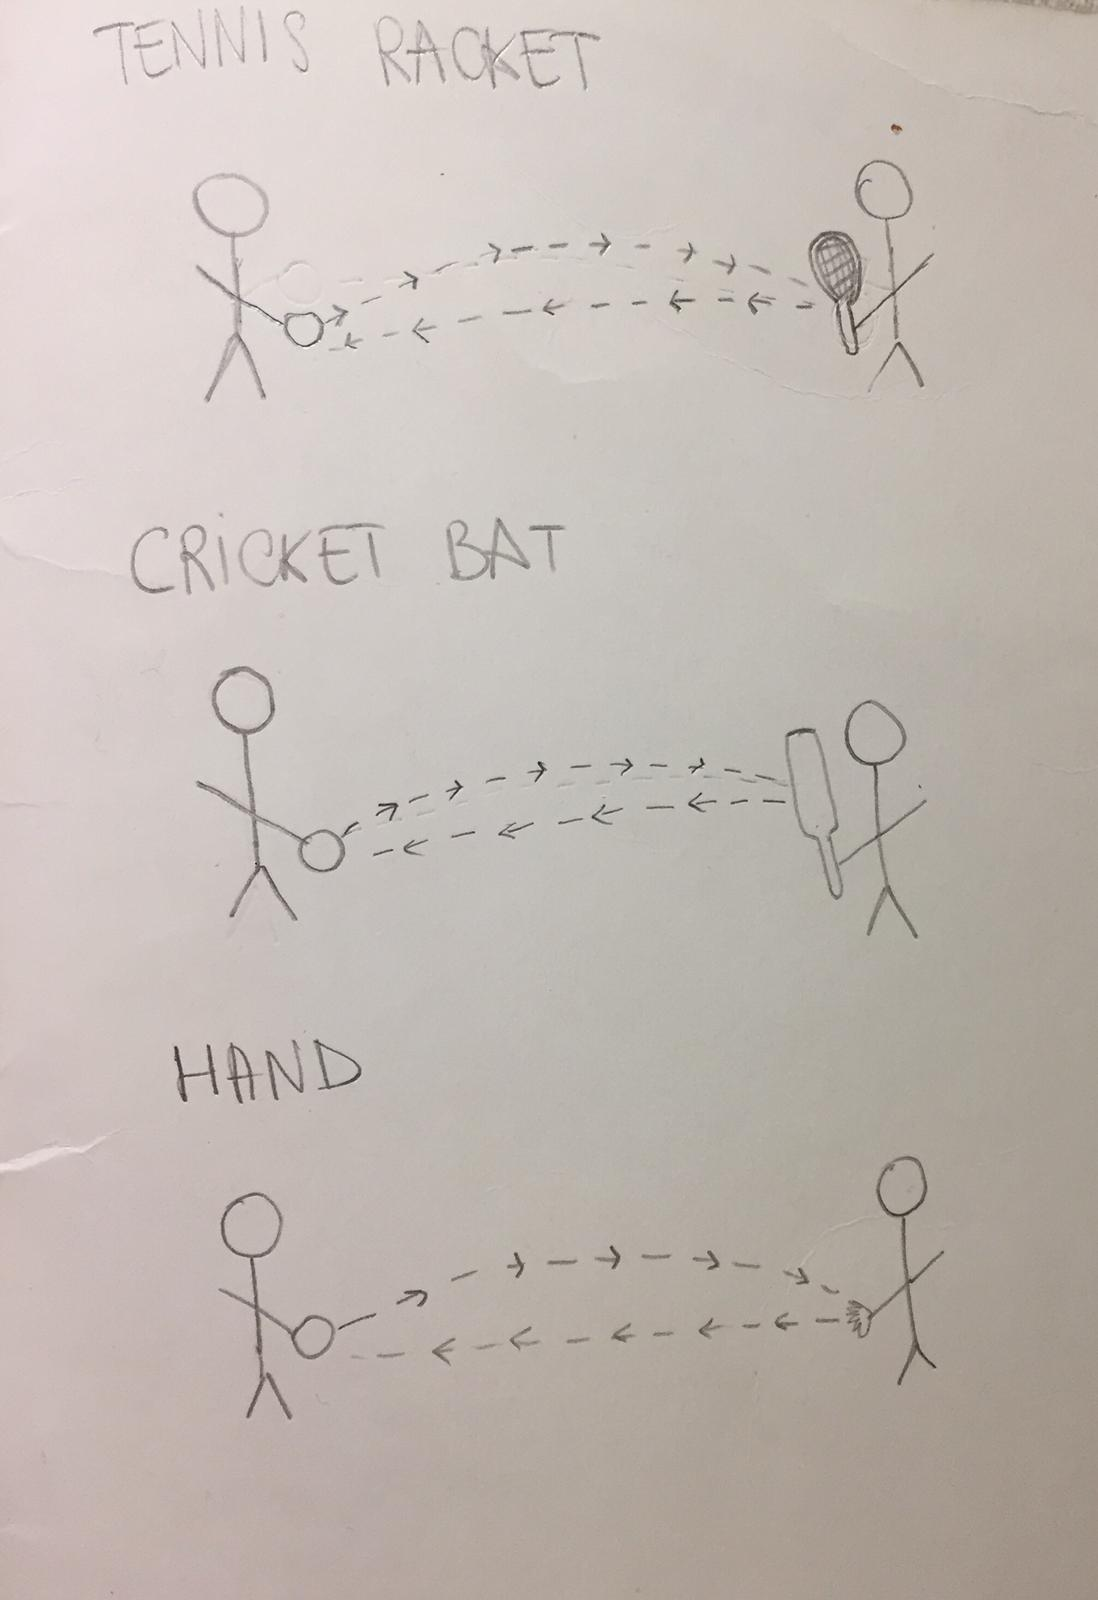 TENNIS RACKET
CRiCKET BAT
HAND